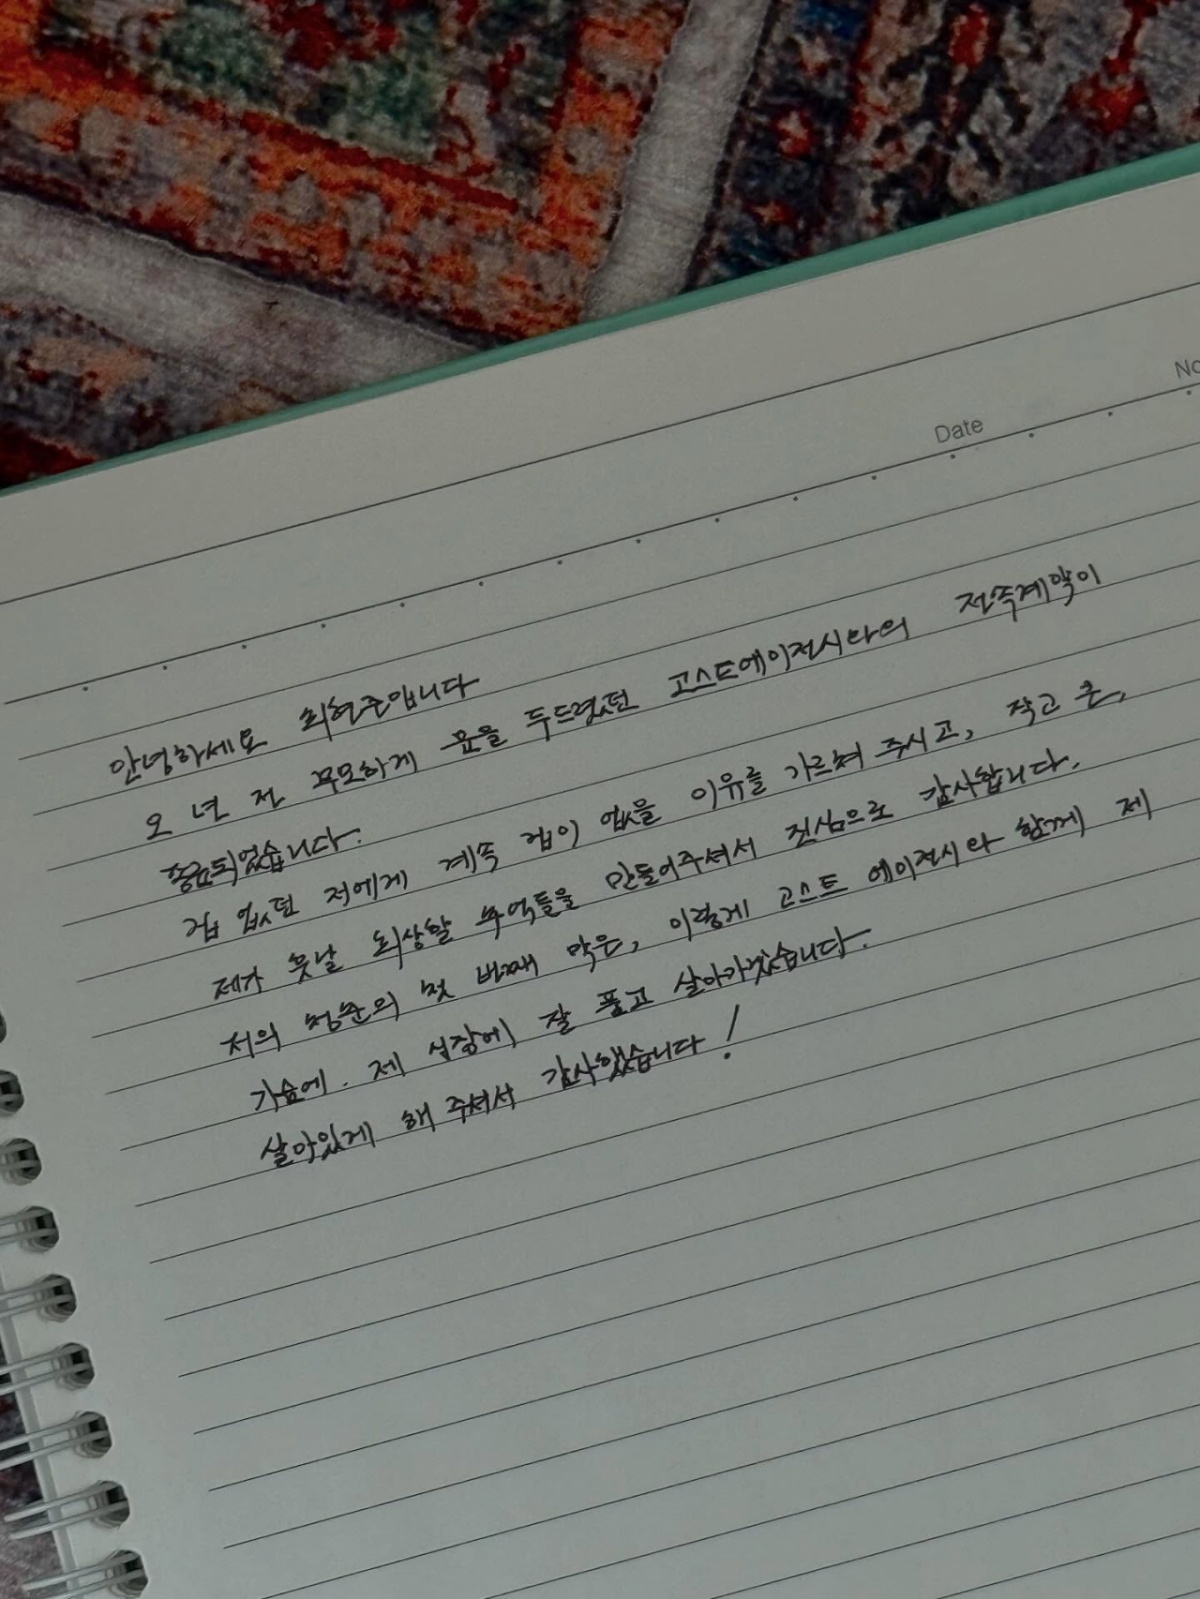 No
Date
안녕하세요 최현준입니다
오 년 전 무모하게 문을 두드렸던 고스트에이전시와의 전속계약이
종료되었습니다.
겁 없던 저에게 계속 겁이 없을 이유를 가르쳐 주시고, 작고 큰,
제가 훗날 회상할 추억들을 만들어주셔서 진심으로 감사합니다.
저의 청춘의 첫 번째 막은, 이렇게 고스트 에이전시와 함께 제
가슴에. 제 심장에 잘 품고 살아가겠습니다.
살아있게 해 주셔서 감사했습니다!